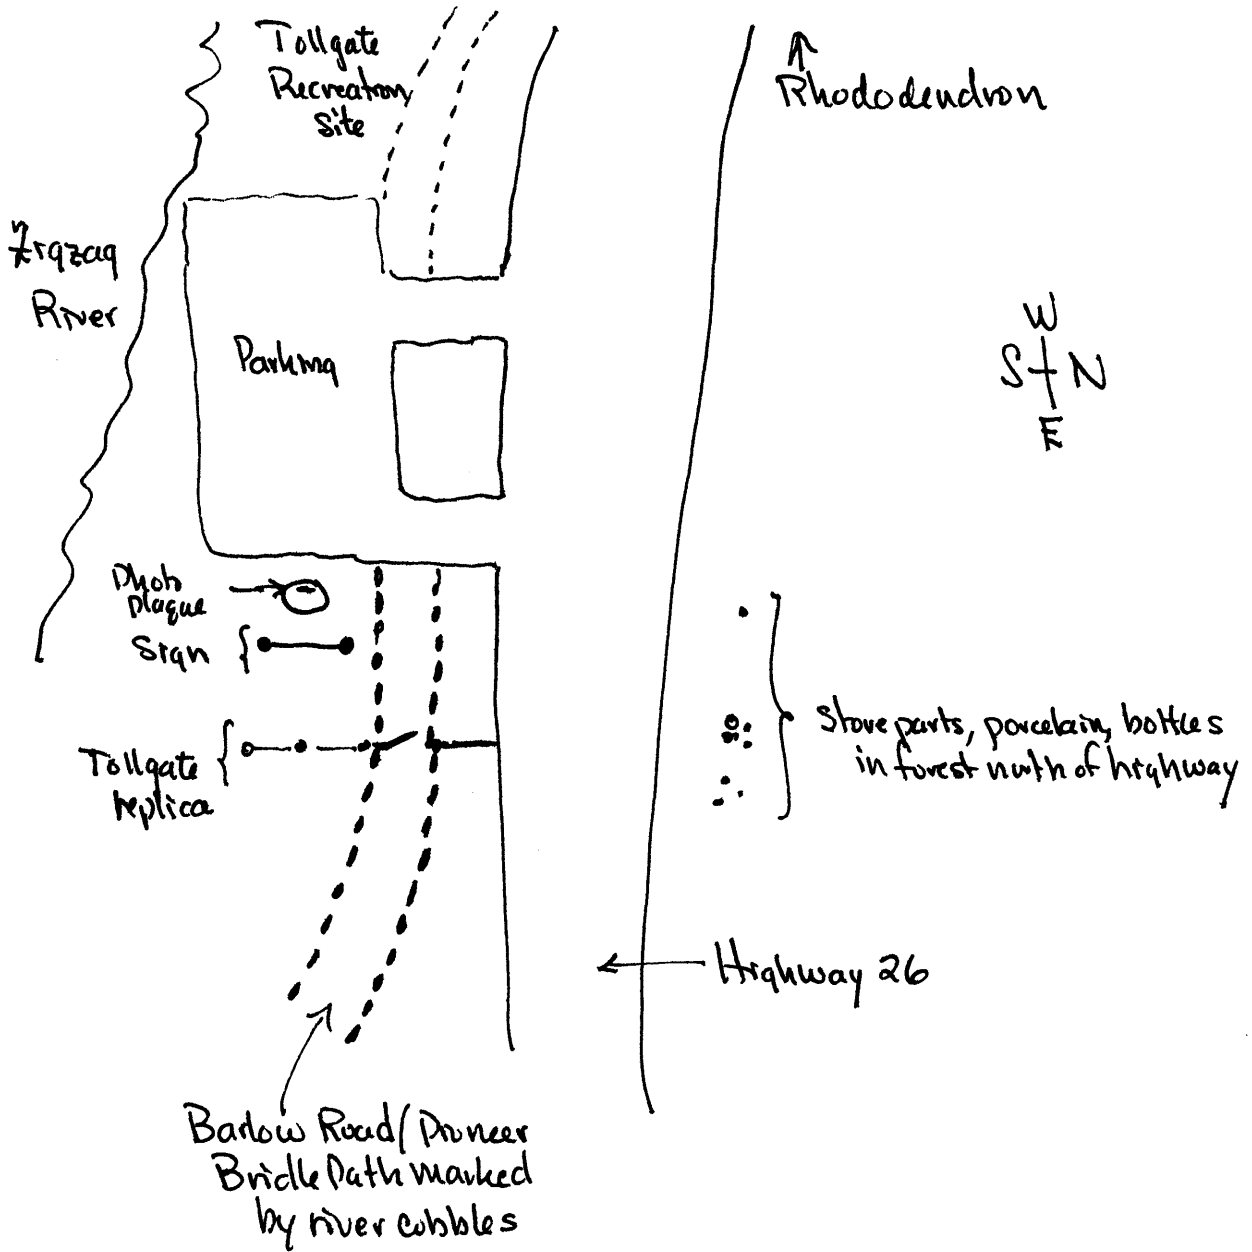 Tollgate
Recreation
Site
↑
Rhododendron
Zigzag
River
W
S N
E
Parking
Photo
plaque
Sign
Tollgate
replica
Stove parts, porcelain, bottles
in forest north of highway
Highway 26
Barlow Road/Pioneer
Bridle Path marked
by river cobbles